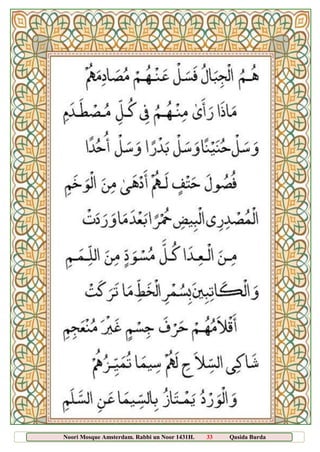 هُمُ الْجِبَالُ فَسَلْ عَنْهُمْ مُصَادِمَهُمْ
مَاذَا رَأَىٰ مِنْهُمُ فِي كُلِّ مُصْطَدَمِ
وَسَلْ حُنَيْنًا وَسَلْ بَدْرًا وَسَلْ أُحُدًا
فُصُولُ حَتْفٍ لَهُمْ أَدْهَىٰ مِنَ الْوَخَمِ
الْمُصْدِرِى الْبِيضِ حُمْرًا بَعْدَ مَا وَرَدَتْ
مِنَ الْعِدَا كُلَّ مُسْوَدٍّ مِنَ اللِّمَمِ
وَالْكَاتِبِينَ بِسُمْرِ الْخَطِّ مَا تَرَكَتْ
أَقْلَامُهُمْ حَرْفَ جِسْمٍ غَيْرَ مُنْعَجِمِ
شَاكِى السِّلَاحِ لَهُمْ سِيمَا تُمَيِّزُهُمْ
وَالْوَرْدُ يَمْتَازُ بِالسِّيمَا عَنِ السَّلَمِ
Noori Mosque Amsterdam. Rabbi un Noor 1431H. 33 Qasida Burda